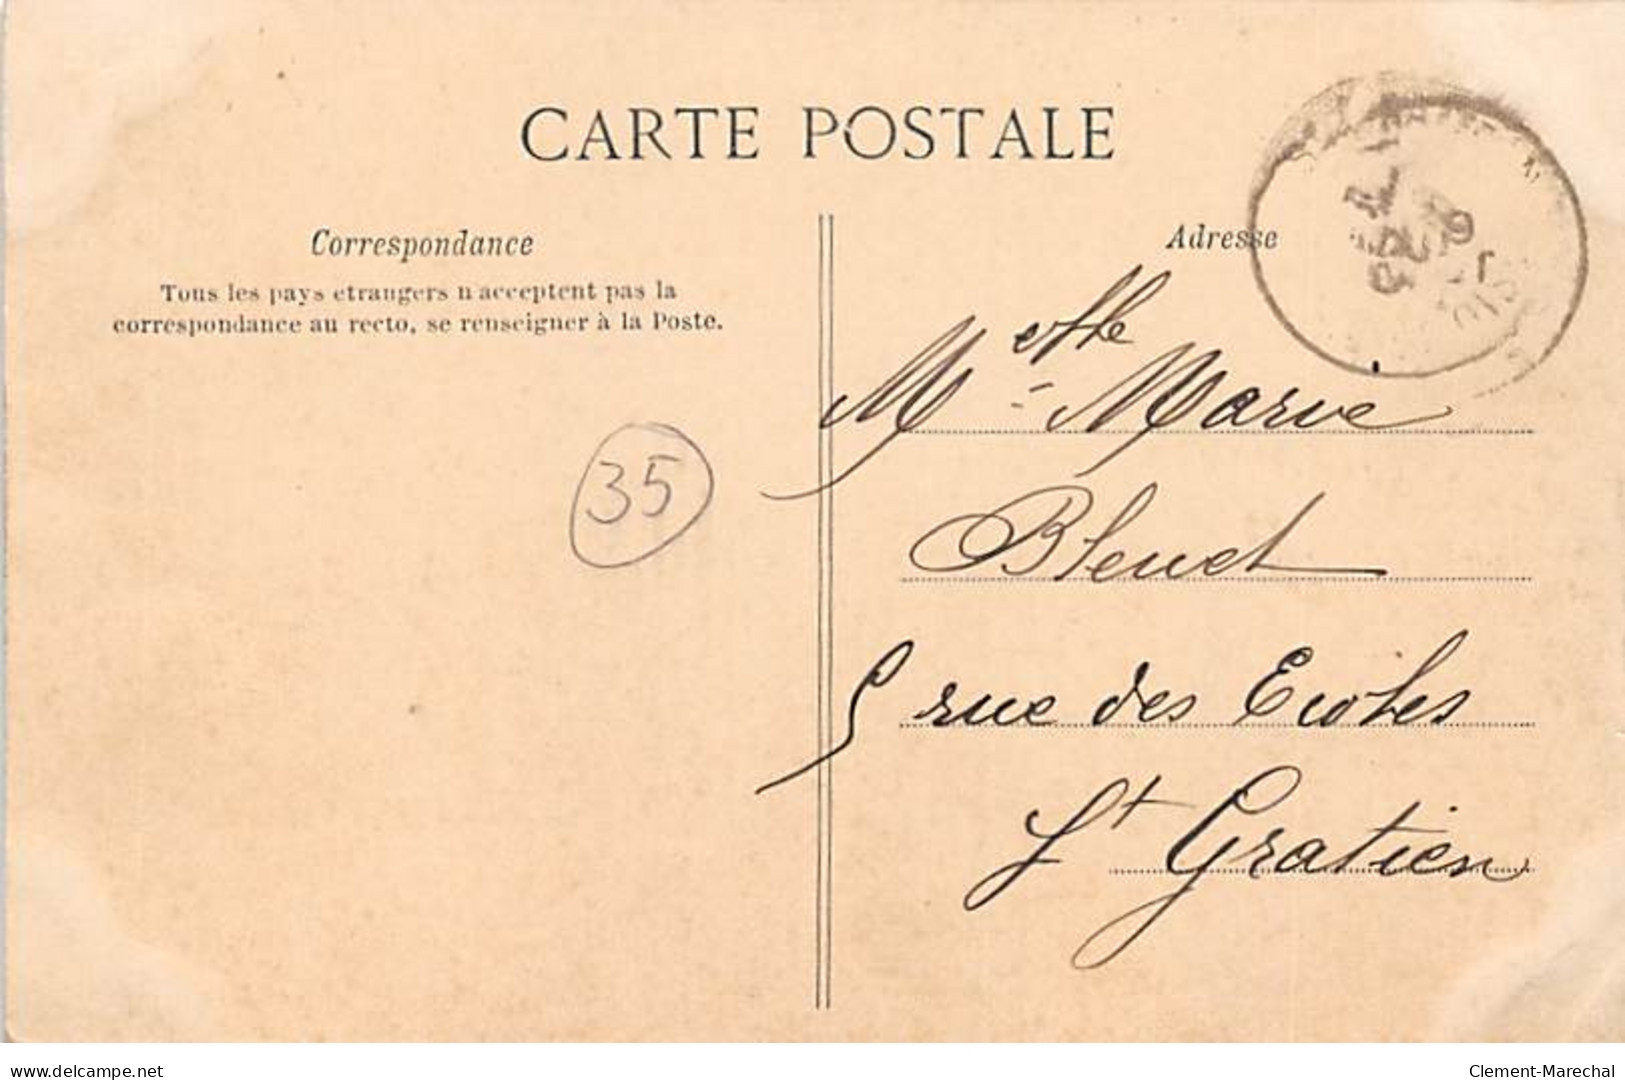 CARTE POSTALE
Correspondance
Tous les pays etrangers n acceptent pas la
correspondance au recto, se renseigner à la Poste.
Adresse
35
Melle Marie
Bleuet
5 rue des Ecoles
St Gratien
delcampe.net
Clement-Marechal